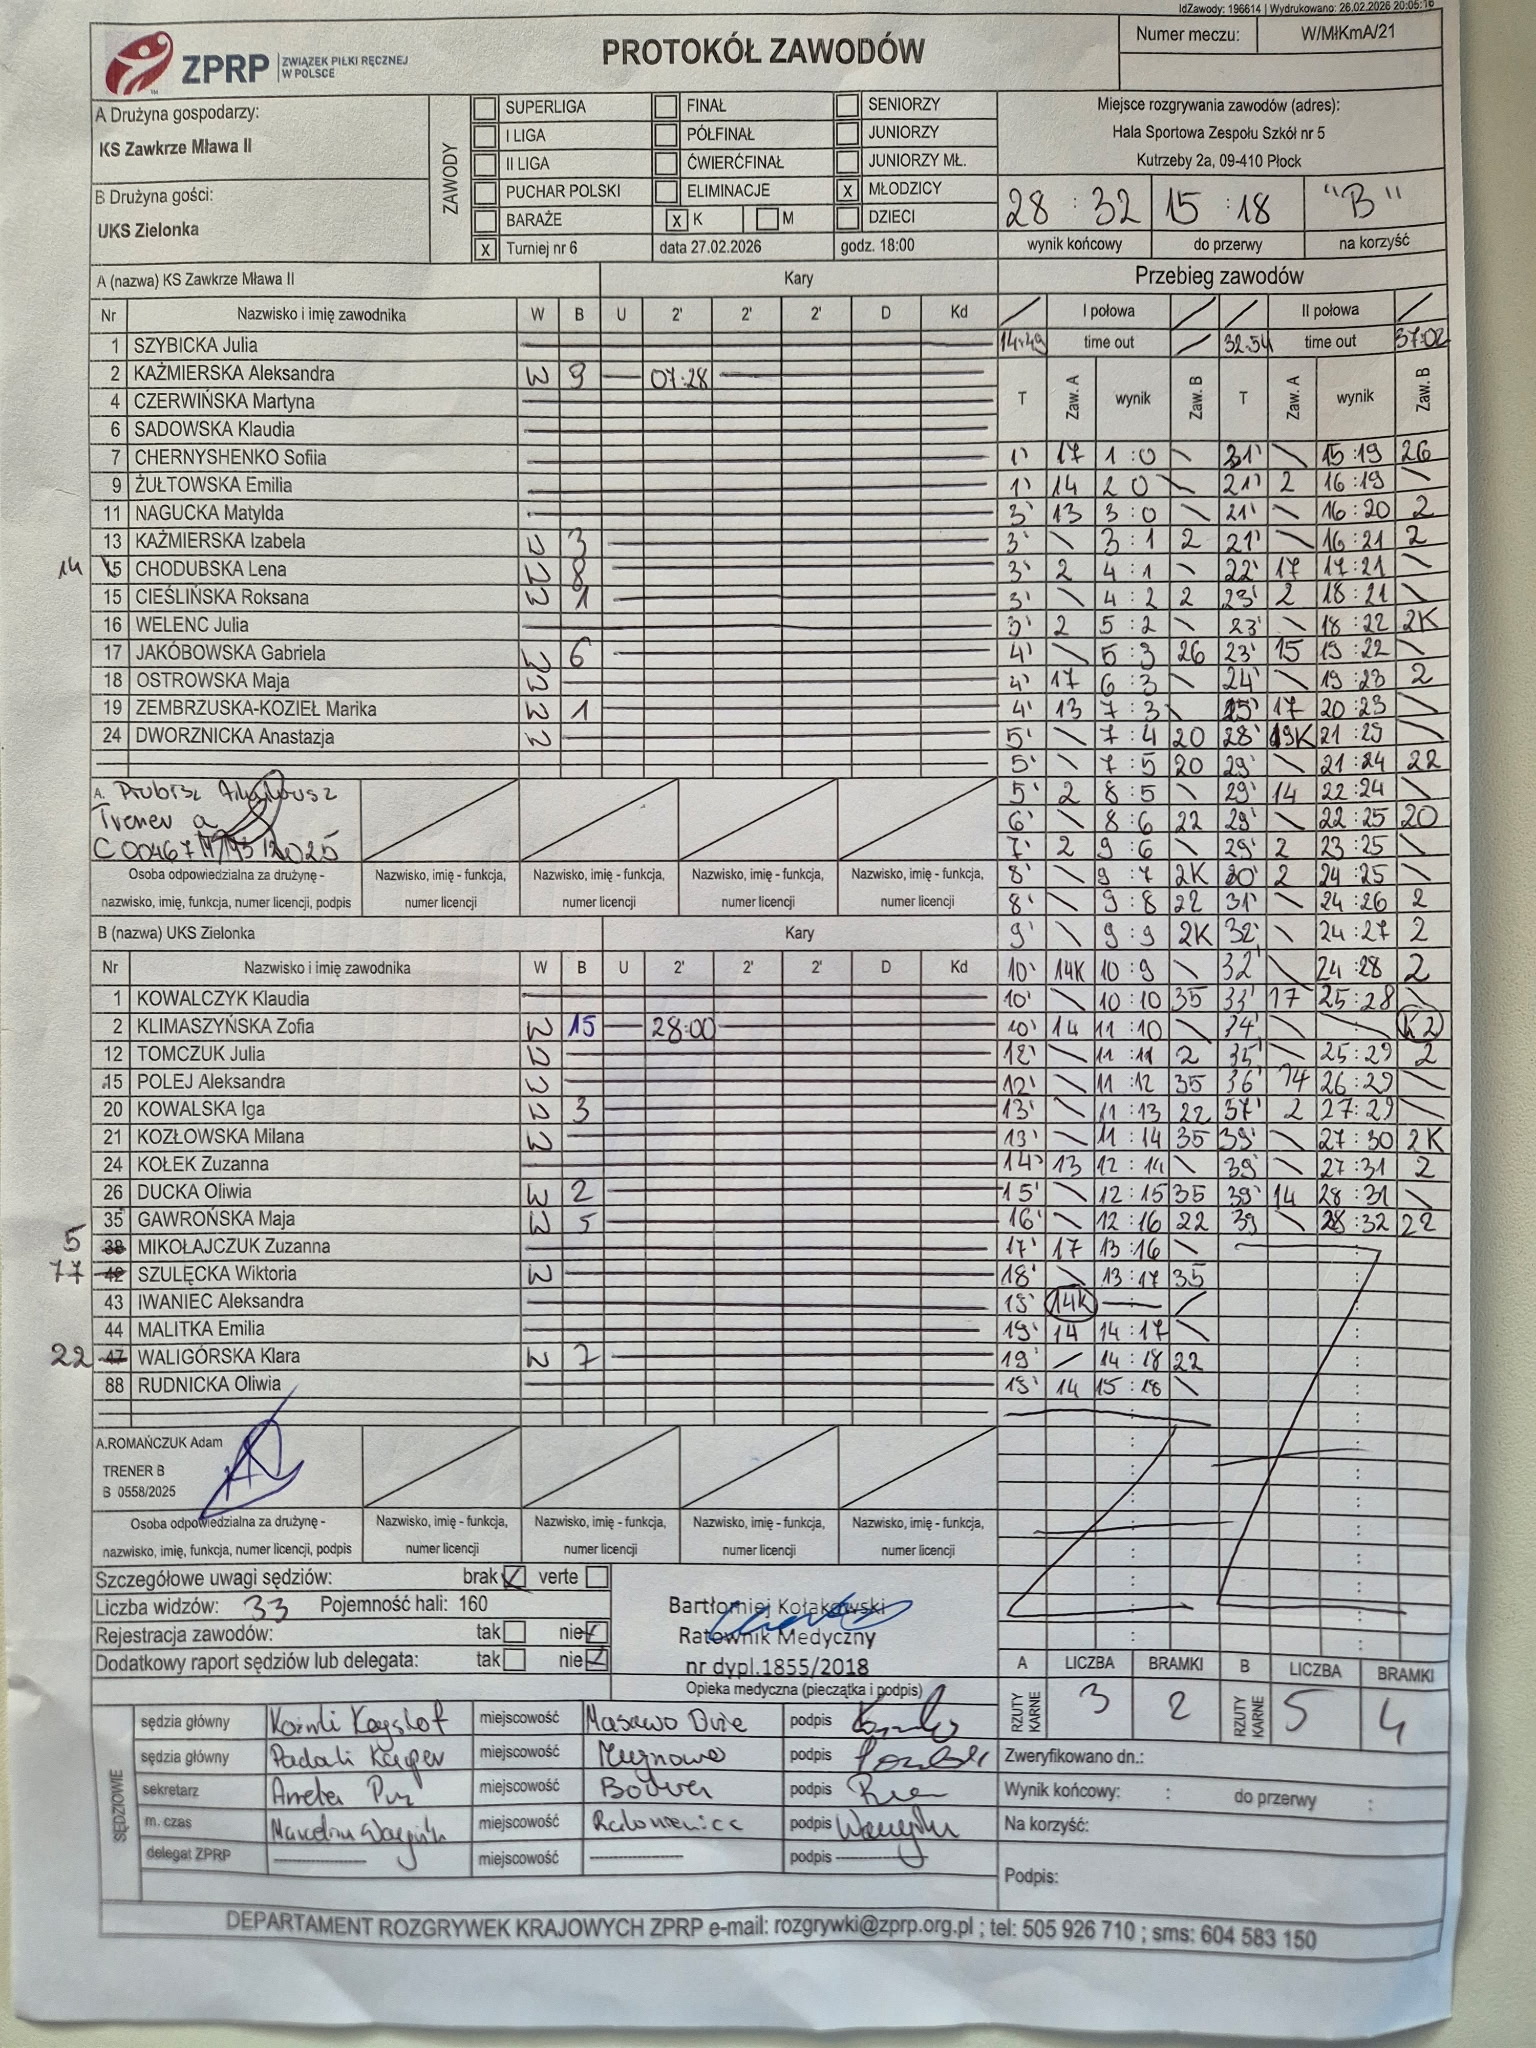 IdZawody: 196614 | Wydrukowano: 26.02.2026 20:05:16
ZPRP ZWIĄZEK PIŁKI RĘCZNEJ W POLSCE
PROTOKÓŁ ZAWODÓW
Numer meczu: W/MłKmA/21
A Drużyna gospodarzy:
KS Zawkrze Mława II
B Drużyna gości:
UKS Zielonka
ZAWODY
SUPERLIGA FINAŁ SENIORZY
I LIGA PÓŁFINAŁ JUNIORZY
II LIGA ĆWIERĆFINAŁ JUNIORZY MŁ.
PUCHAR POLSKI ELIMINACJE x MŁODZICY
BARAŻE x K M DZIECI
x Turniej nr 6 data 27.02.2026 godz. 18:00
Miejsce rozgrywania zawodów (adres):
Hala Sportowa Zespołu Szkół nr 5
Kutrzeby 2a, 09-410 Płock
28 : 32 15 : 18 "B"
wynik końcowy do przerwy na korzyść
A (nazwa) KS Zawkrze Mława II Kary
Nr Nazwisko i imię zawodnika W B U 2' 2' 2' D Kd
1 SZYBICKA Julia
2 KAŹMIERSKA Aleksandra W 9 07:28
4 CZERWIŃSKA Martyna
6 SADOWSKA Klaudia
7 CHERNYSHENKO Sofiia
9 ŻUŁTOWSKA Emilia
11 NAGUCKA Matylda
13 KAŹMIERSKA Izabela W 3
14 15 CHODUBSKA Lena W 8
15 CIEŚLIŃSKA Roksana W 1
16 WELENC Julia
17 JAKÓBOWSKA Gabriela W 6
18 OSTROWSKA Maja W
19 ZEMBRZUSKA-KOZIEŁ Marika W 1
24 DWORZNICKA Anastazja W
A.
Trener a
Osoba odpowiedzialna za drużynę - nazwisko, imię, funkcja, numer licencji, podpis
Nazwisko, imię - funkcja, numer licencji
Nazwisko, imię - funkcja, numer licencji
Nazwisko, imię - funkcja, numer licencji
Nazwisko, imię - funkcja, numer licencji
B (nazwa) UKS Zielonka Kary
Nr Nazwisko i imię zawodnika W B U 2' 2' 2' D Kd
1 KOWALCZYK Klaudia
2 KLIMASZYŃSKA Zofia W 15 28:00
12 TOMCZUK Julia W
15 POLEJ Aleksandra W
20 KOWALSKA Iga W 3
21 KOZŁOWSKA Milana W
24 KOŁEK Zuzanna
26 DUCKA Oliwia W 2
35 GAWROŃSKA Maja W 5
5 38 MIKOŁAJCZUK Zuzanna
77 42 SZULĘCKA Wiktoria W
43 IWANIEC Aleksandra
44 MALITKA Emilia
22 47 WALIGÓRSKA Klara W 7
88 RUDNICKA Oliwia
A.ROMAŃCZUK Adam
TRENER B
B 0558/2025
Osoba odpowiedzialna za drużynę - nazwisko, imię, funkcja, numer licencji, podpis
Nazwisko, imię - funkcja, numer licencji
Nazwisko, imię - funkcja, numer licencji
Nazwisko, imię - funkcja, numer licencji
Nazwisko, imię - funkcja, numer licencji
Szczegółowe uwagi sędziów: brak verte
Liczba widzów: 33 Pojemność hali: 160
Rejestracja zawodów: tak nie
Dodatkowy raport sędziów lub delegata: tak nie
Bartłomiej Kołakowski
Ratownik Medyczny
nr dypl.1855/2018
Opieka medyczna (pieczątka i podpis)
SĘDZIOWIE
sędzia główny miejscowość podpis
sędzia główny miejscowość podpis
sekretarz Aneta miejscowość podpis
m. czas miejscowość podpis
delegat ZPRP miejscowość podpis
Przebieg zawodów
I połowa II połowa
14:49 time out 32:54 time out 37:02
T Zaw. A wynik Zaw. B T Zaw. A wynik Zaw. B
1' 17 1 : 0 \ 21' \ 15 : 19 26
1' 14 2 0 \ 21' 2 16 : 19 \
3' 13 3 : 0 \ 21' \ 16 : 20 2
3' \ 3 : 1 2 21' \ 16 : 21 2
3' 2 4 : 1 \ 22' 17 17 : 21 \
3' \ 4 : 2 2 23' 2 18 : 21 \
3' 2 5 : 2 \ 23' \ 18 : 22 2K
4' \ 5 : 3 26 23' 15 19 : 22 \
4' 17 6 : 3 \ 24' \ 19 : 23 2
4' 13 7 : 3 \ 25' 17 20 : 23 \
5' \ 7 : 4 20 28' 19K 21 : 23 \
5' \ 7 : 5 20 29' \ 21 : 24 22
5' 2 8 : 5 \ 29' 14 22 : 24 \
6' \ 8 : 6 22 29' \ 22 : 25 20
7' 2 9 : 6 \ 29' 2 23 : 25 \
8' \ 9 : 7 2K 30' 2 24 : 25 \
8' \ 9 : 8 22 31' \ 24 : 26 2
9' \ 9 : 9 2K 32' \ 24 : 27 2
10' 14K 10 : 9 \ 32' \ 24 : 28 2
10' \ 10 : 10 35 33' 17 25 : 28 \
10' 14 11 : 10 \ 34' \ \ : K2
12' \ 11 : 11 2 35' \ 25 : 29 2
12' \ 11 : 12 35 36' 14 26 : 29 \
13' \ 11 : 13 22 37' 2 27 : 29 \
13' \ 11 : 14 35 39' \ 27 : 30 2K
14' 13 12 : 14 \ 39' \ 27 : 31 2
15' \ 12 : 15 35 39' 14 28 : 31 \
16' \ 12 : 16 22 39 \ 28 : 32 22
17' 17 13 : 16 \
18' \ 13 : 17 35
19' 14K — /
19' 14 14 : 17 \
19' / 14 : 18 22
19' 14 15 : 18 \
A LICZBA BRAMKI B LICZBA BRAMKI
RZUTY KARNE 3 2 RZUTY KARNE 5 4
Zweryfikowano dn.:
Wynik końcowy: : do przerwy :
Na korzyść:
Podpis:
DEPARTAMENT ROZGRYWEK KRAJOWYCH ZPRP e-mail: rozgrywki@zprp.org.pl ; tel: 505 926 710 ; sms: 604 583 150